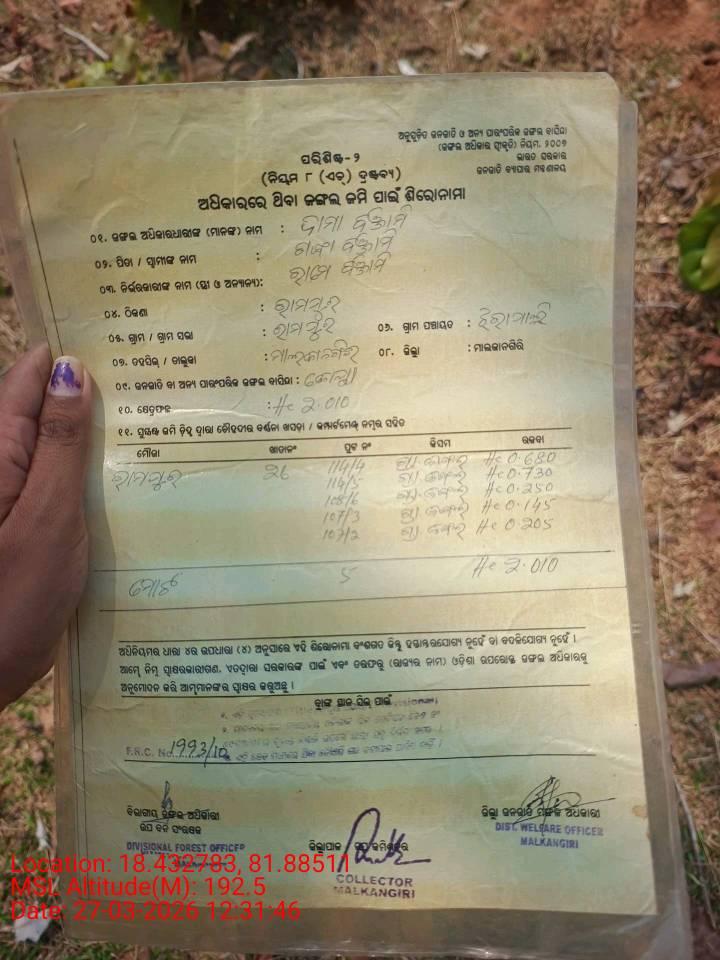 ଅନୁସୂଚିତ ଜନଜାତି ଓ ଅନ୍ୟ ପାରଂପରିକ ଜଙ୍ଗଲ ବାସିନ୍ଦା
(ଜଙ୍ଗଲ ଅଧିକାର ସ୍ୱୀକୃତି) ନିୟମ. ୨୦୦୭
ଭାରତ ସରକାର
ଜନଜାତି ବ୍ୟାପାର ମନ୍ତ୍ରଣାଳୟ
ପରିଶିଷ୍ଟ-୨
(ନିୟମ ୮ (ଏଚ୍) ଦ୍ରଷ୍ଟବ୍ୟ)
ଅଧିକାରରେ ଥିବା ଜଙ୍ଗଲ ଜମି ପାଇଁ ଶିରୋନାମା
୦୧. ଜଙ୍ଗଲ ଅଧିକାରଧାରୀଙ୍କ (ମାନଙ୍କ) ନାମ :
୦୨. ପିତା / ସ୍ୱାମୀଙ୍କ ନାମ :
୦୩. ନିର୍ଭରକାରୀଙ୍କ ନାମ (ସ୍ତ୍ରୀ ଓ ଅନ୍ୟାନ୍ୟ):
୦୪. ଠିକଣା : ରାମପୁର
୦୫. ଗ୍ରାମ / ଗ୍ରାମ ସଭା : ରାମପୁର ୦୬. ଗ୍ରାମ ପଞ୍ଚାୟତ :
୦୭. ତହସିଲ୍ / ତାଲୁକା : ମାଲକାନଗିରି ୦୮. ଜିଲ୍ଲା : ମାଲକାନଗିରି
୦୯. ଜନଜାତି ବା ଅନ୍ୟ ପାରଂପରିକ ଜଙ୍ଗଲ ବାସିନ୍ଦା : କୋୟା
୧୦. କ୍ଷେତ୍ରଫଳ : Hc 2.010
୧୧. ସୁସ୍ପଷ୍ଟ ଜମି ଚିହ୍ନ ଦ୍ୱାରା ଚୌହଦୀର ବର୍ଣ୍ଣନା ଖସଡ଼ା / କମ୍ପାର୍ଟମେଣ୍ଟ ନମ୍ବର ସହିତ
ମୌଜା ଖାତାନଂ ପ୍ଲଟ ନଂ କିସମ ରକବା
ରାମପୁର 26 114/4 ଗ୍ରା ଜଙ୍ଗଲ Hc 0.680
114/5 ଗ୍ରା ଜଙ୍ଗଲ Hc 0.730
108/6 ଗ୍ରା ଜଙ୍ଗଲ Hc 0.250
107/3 ଗ୍ରା ଜଙ୍ଗଲ Hc 0.145
107/2 ଗ୍ରା ଜଙ୍ଗଲ Hc 0.205
ମୋଟ 5 Hc 2.010
ଅଧିନିୟମର ଧାରା ୪ର ଉପଧାରା (୪) ଅନୁସାରେ ଏହି ଶିରୋନାମା ବଂଶଗତ କିନ୍ତୁ ହସ୍ତାନ୍ତରଯୋଗ୍ୟ ନୁହେଁ ବା ବଦଳିଯୋଗ୍ୟ ନୁହେଁ ।
ଆମ୍ଭେ ନିମ୍ନ ସ୍ୱାକ୍ଷରକାରୀଗଣ, ଏତଦ୍ଦ୍ୱାରା ସରକାରଙ୍କ ପାଇଁ ଏବଂ ତରଫରୁ (ରାଜ୍ୟର ନାମ) ଓଡ଼ିଶା ଉପରୋକ୍ତ ଜଙ୍ଗଲ ଅଧିକାରକୁ
ଅନୁମୋଦନ କରି ଆମ୍ଭମାନଙ୍କର ସ୍ୱାକ୍ଷର କରୁଅଛୁ ।
ବ୍ଲାଙ୍କ ସ୍ଥାନ ସିଲ୍ ପାଇଁ
F.R.C. No 1993/10
ବିଭାଗୀୟ ଜଙ୍ଗଲ ଅଧିକାରୀ
ଉପ ବନ ସଂରକ୍ଷକ
DIVISIONAL FOREST OFFICER
ଜିଲ୍ଲାପାଳ
COLLECTOR
MALKANGIRI
ଜିଲ୍ଲା ଜନଜାତି ମଙ୍ଗଳ ଅଧିକାରୀ
DIST. WELFARE OFFICER
MALKANGIRI
Location: 18.432783, 81.88511
MSL Altitude(M): 192.5
Date: 27-03-2026 12:31:46